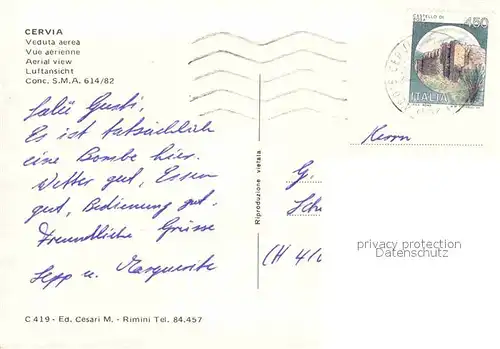 CERVIA
Veduta aerea
Vue aérienne
Aerial view
Luftansicht
Conc. S.M.A. 614/82
CASTELLO DI
450
ITALIA
Salü Gusti.
Es ist tatsächlich
eine Bombe hier.
Wetter gut, Essen
gut, Bedienung gut.
Freundliche Grüsse
Sepp u. Marguerite
Riproduzione vietata
Herrn
G.
(CH 41
privacy protection
Datenschutz
C 419 - Ed. Cesari M. - Rimini Tel. 84.457